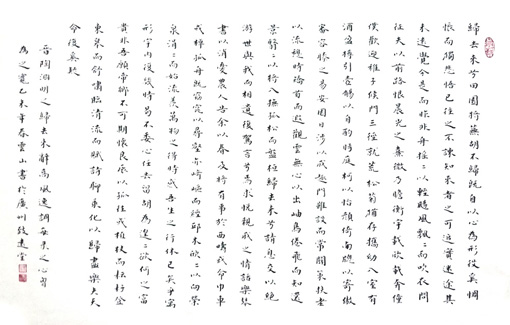 歸去來兮田園將蕪胡不歸既自以心為形役奚惆
悵而獨悲悟已往之不諫知來者之可追實迷途其
未遠覺今是而昨非舟搖〻以輕颺風飄〻而吹衣問
征夫以前路恨晨光之熹微乃瞻衡宇載欣載奔僮
僕歡迎稚子候門三徑就荒松菊猶存攜幼入室有
酒盈樽引壺觴以自酌眄庭柯以怡顏倚南窗以寄傲
審容膝之易安園日涉以成趣門雖設而常關策扶老
以流憩時矯首而遐觀雲無心以出岫鳥倦飛而知還
景翳〻以將入撫孤松而盤桓歸去來兮請息交以絕
游世與我而相違復駕言兮焉求悅親戚之情話樂琴
書以消憂農人告余以春及將有事於西疇或命巾車
或棹孤舟既窈窕以尋壑亦崎嶇而經邱木欣〻以向榮
泉涓〻而始流羨萬物之得時感吾生之行休已矣乎寓
形宇內復幾時曷不委心任去留胡為遑〻欲何之富
貴非吾願帝鄉不可期懷良辰以孤往或植杖而耘耔登
東皋而舒嘯臨清流而賦詩聊乘化以歸盡樂夫天
命復奚疑
晉陶淵明之歸去來辭高風逸調每來之心
為之寬乙未年春雲山書於廣州致遠堂